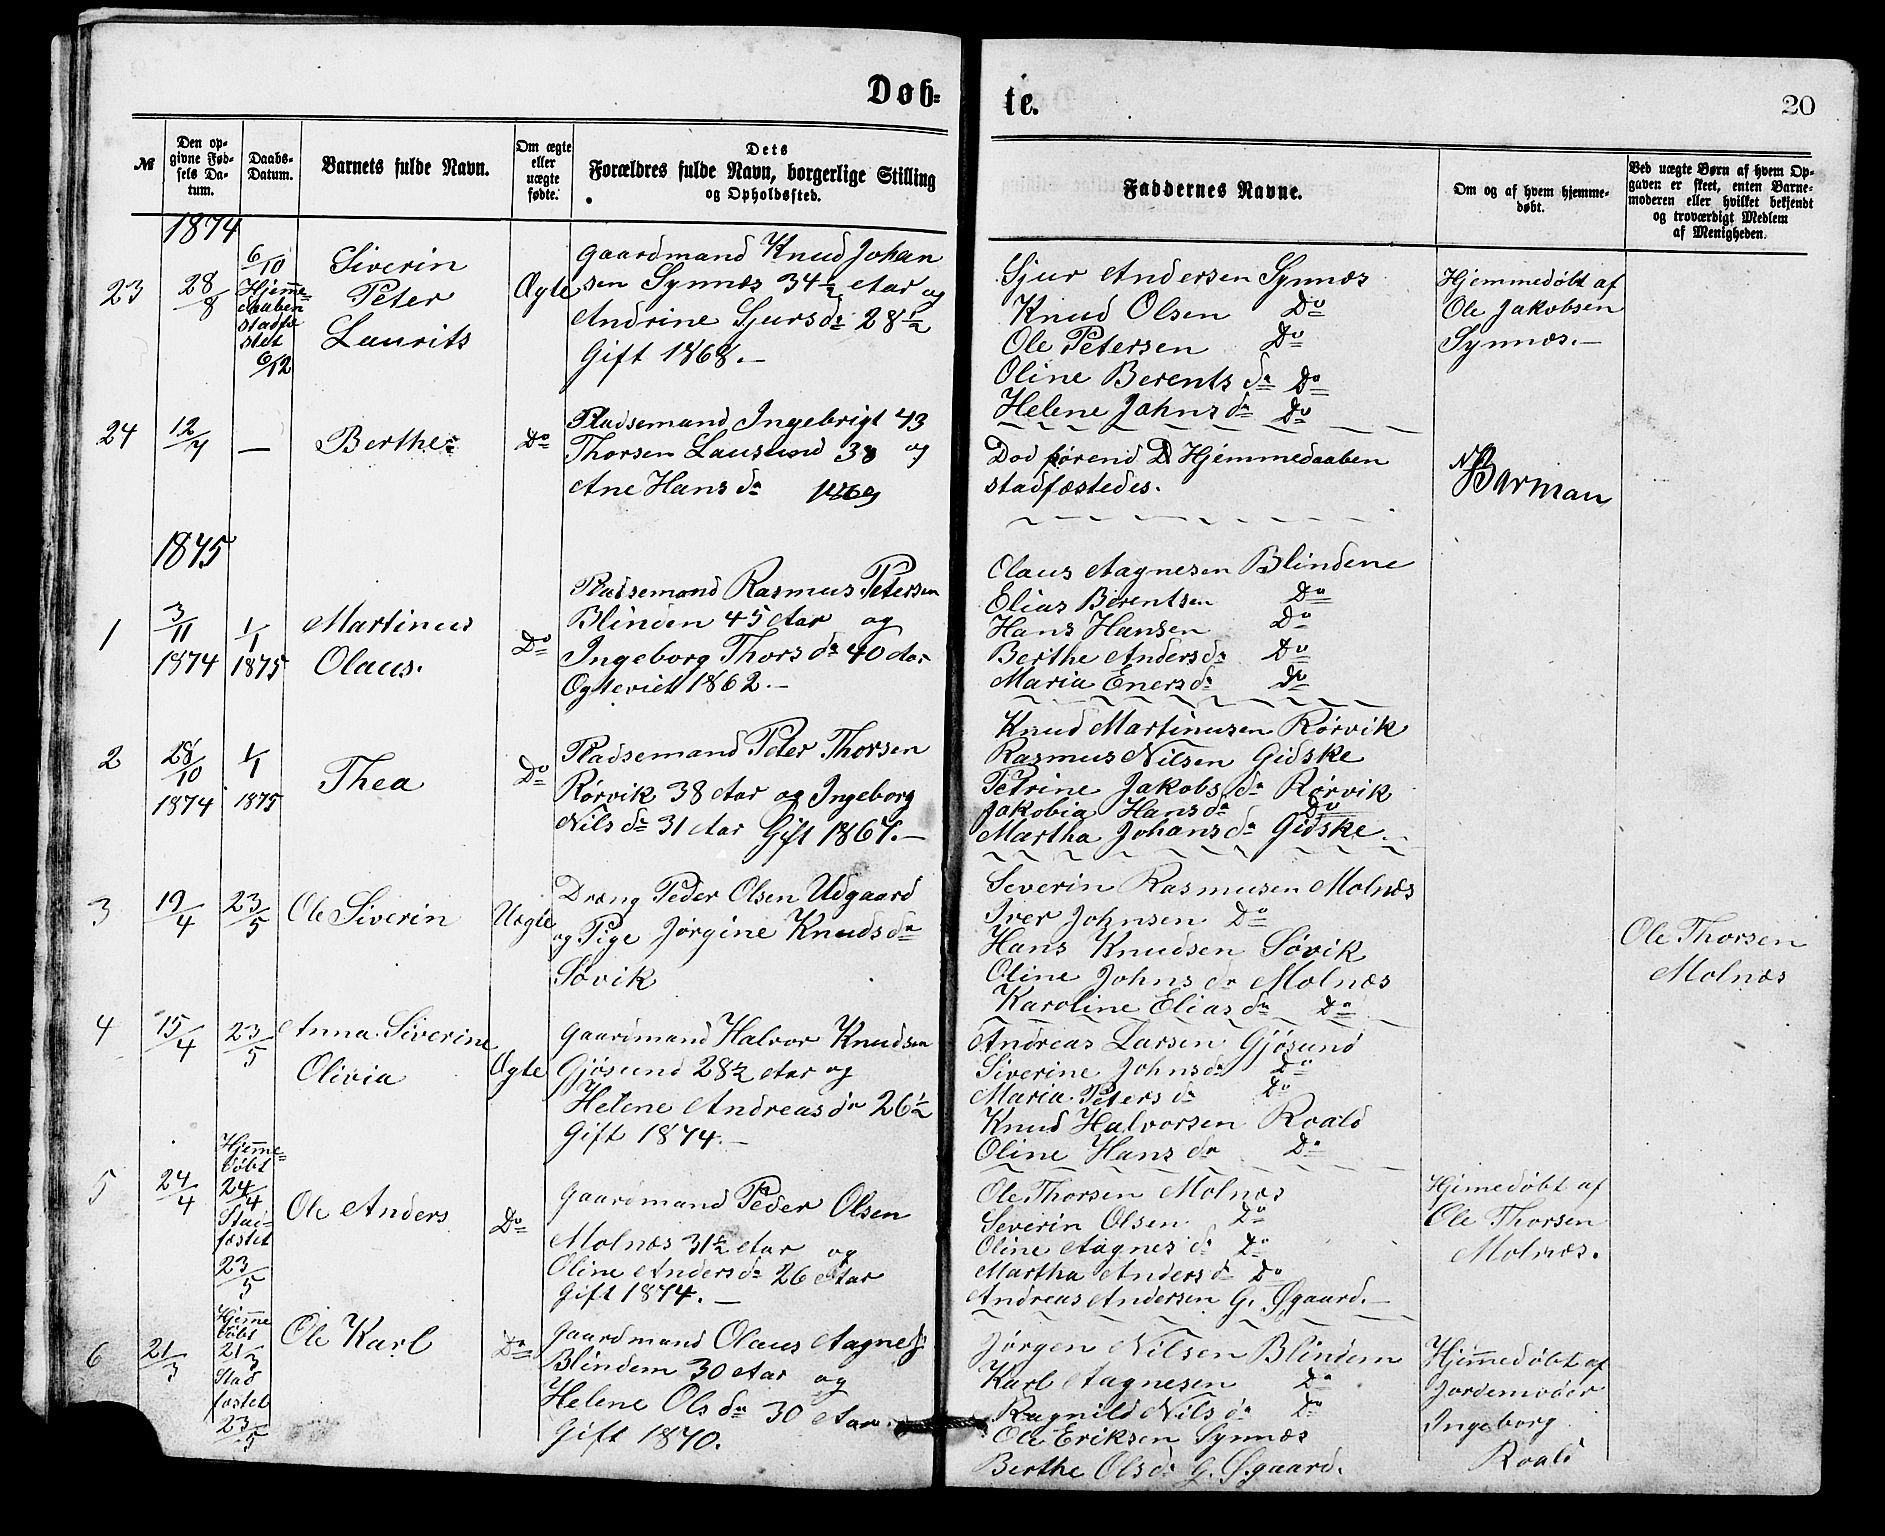 Døb-
te.
20
№
Den op-
givne Fød-
sels Da-
tum.
Daabs-
Datum.
Barnets fulde Navn.
Om ægte
eller
uægte
fødte.
Dets
Forældres fulde Navn, borgerlige Stilling
og Opholdssted.
Faddernes Navne.
Om og af hvem hjemme-
døbt.
Ved uægte Børn af hvem Op-
gaven er skeet, enten Barne-
moderen eller hvilket bekjendt
og troværdigt Medlem
af Menigheden.
1874
23
28/8
6/10
Hjemme-
daaben
stadfæ
stet
6/12
Siverin
Peter
Laurits
Ægte
Gaardmand Knud Johan
sen Synnæs 34½ Aar og
Andrine Sjursdr 28½
Gift 1868.-
Sjur Andersen Synnæs
Knud Olsen Do
Ole Petersen Do
Oline Berentsdr Do
Helene Johnsdr Do
Hjemmedøbt af
Ole Jakobsen
Synnæs.-
24
12/7
-
Berthe:
Do
Pladsemand Ingebrigt 43
Thorsen Lausund 38 og
Ane Hansdr 1869
Dod førend D Hjemmedaaben
stadfæstedes.
N Barman
1875
1
3/11
1874
1/1
1875
Martinus
Olaus.
Do
Pladsemand Rasmus Petersen
Blinden 45 Aar og
Ingeborg Thorsdr 40 Aar
Ægteviet 1862.-
Olaus Aagnesen Blindene
Elias Berentsen Do
Hans Hansen Do
Berthe Andersdr Do
Maria Enersdr Do
2
28/10
1874
1/1
1875
Thea
Do
Pladsemand Peter Thorsen
Rørvik 38 Aar og Ingeborg
Nilsdr 31 Aar Gift 1867.-
Knud Martinusen Rørvik
Rasmus Nilsen Gidske
Petrine Jakobsdr Rørvik
Jakobia Hansdr Do
Martha Johansdr Gidske.
3
19/4
23/5
Ole Siverin
Uægte
Dræng Peder Olsen Udgaard
og Pige Jørgine Knudsdr
Søvik
Severin Rasmusen Molnæs
Iver Johnsen Do
Hans Knudsen Søvik
Oline Johnsdr Molnæs
Karoline Eliasdr Do
Ole Thorsen
Molnæs
4
15/4
23/5
Anna Siverine
Olivia
Ægte
Gaardmand Halvor Knudsen
Gjøsund 28½ Aar og
Helene Andreasdr 26½
Gift 1874.-
Andreas Larsen Gjøsund
Siverine Johnsdr Do
Maria Petersdr Do
Knud Halvorsen Roald
Oline Hansdr Do
5
24/4
Hjemme-
døbt
24/4
Stad-
fæstet
23/5
Ole Anders
Do
Gaardmand Peder Olsen
Molnæs 31½ Aar og
Oline Andersdr 26 Aar
Gift 1874.-
Ole Thorsen Molnæs
Severin Olsen Do
Oline Aagnesdr Do
Martha Andersdr Do
Andreas Andersen G. Øgaard.-
Hjemedøbt af
Ole Thorsen
Molnæs.
6
21/3
Hjemme
døbt
21/3
Stad
fæstet
23/5
Ole Karl
Do
Gaardmand Olaus Aagnes
Blindem 30 Aar og
Helene Olsdr 30 Aar.
Gift 1870.
Jørgen Nilsen Blindem
Karl Aagnesen Do
Ragnild Nilsdr Do
Ole Eriksen Synnæs
Berthe Olsdr G. Øgaard.
Hjemmedøbt af
Jordemoder
Ingeborg
Roald